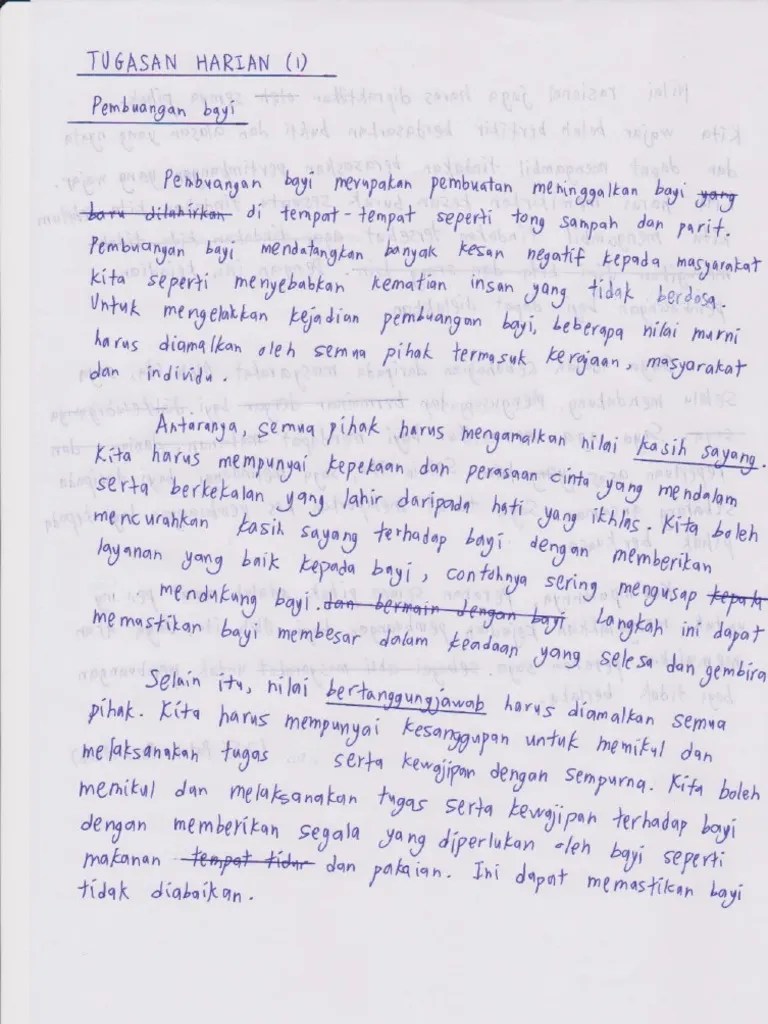 TUGASAN HARIAN (1)
Pembuangan bayi
Pembuangan bayi merupakan pembuatan meninggalkan bayi yang
baru dilahirkan di tempat-tempat seperti tong sampah dan parit.
Pembuangan bayi mendatangkan banyak kesan negatif kepada masyarakat
kita seperti menyebabkan kematian insan yang tidak berdosa.
Untuk mengelakkan kejadian pembuangan bayi, beberapa nilai murni
harus diamalkan oleh semua pihak termasuk kerajaan, masyarakat
dan individu.
Antaranya, semua pihak harus mengamalkan nilai kasih sayang.
Kita harus mempunyai kepekaan dan perasaan cinta yang mendalam
serta berkekalan yang lahir daripada hati yang ikhlas. Kita boleh
mencurahkan kasih sayang terhadap bayi dengan memberikan
layanan yang baik kepada bayi, contohnya sering mengusap kepala
mendukung bayi. dan bermain dengan bayi Langkah ini dapat
memastikan bayi membesar dalam keadaan yang selesa dan gembira
Selain itu, nilai bertanggungjawab harus diamalkan semua
pihak. Kita harus mempunyai kesanggupan untuk memikul dan
melaksanakan tugas serta kewajipan dengan sempurna. Kita boleh
memikul dan melaksanakan tugas serta kewajipan terhadap bayi
dengan memberikan segala yang diperlukan oleh bayi seperti
makanan tempat tidur dan pakaian. Ini dapat memastikan bayi
tidak diabaikan.